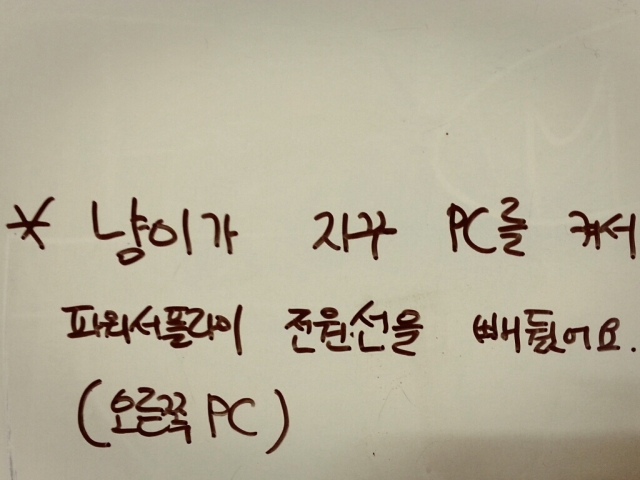 * 냥이가 자꾸 PC를 켜서
파워서플라이 전원선을 빼뒀어요.
(오른쪽 PC)